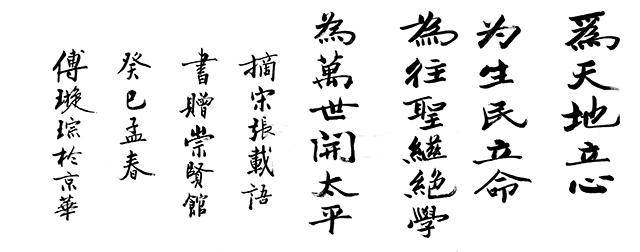 為天地立心
为生民立命
為往聖繼絶學
為萬世開太平
摘宋張載語
書贈崇賢館
癸巳孟春
傅璇琮於京華